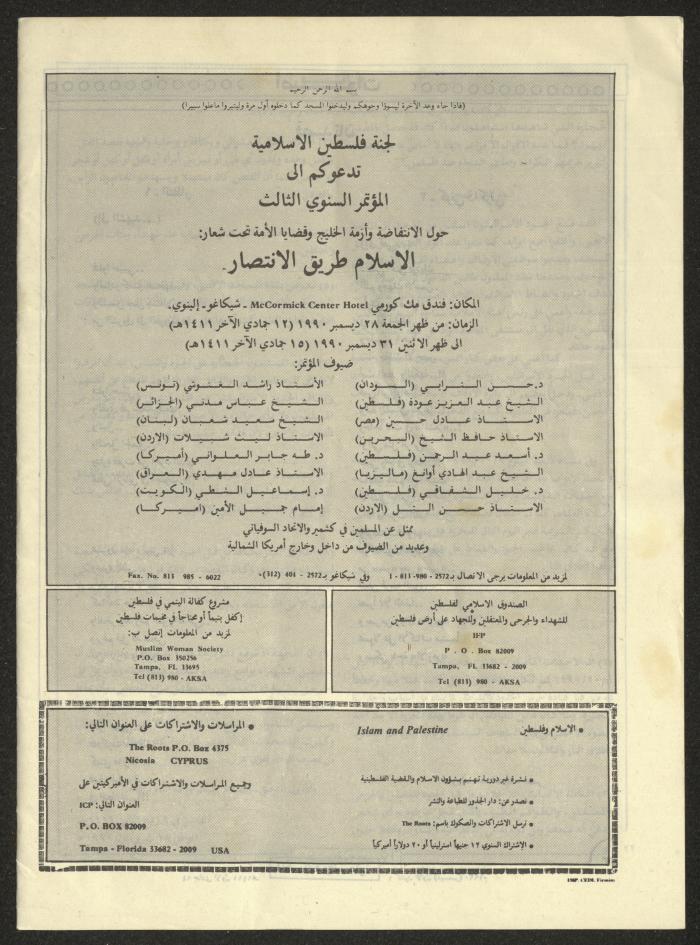 بسم الله الرحمن الرحيم
(فاذا جاء وعد الآخرة ليسوؤا وجوهكم وليدخلوا المسجد كما دخلوه أول مرة وليتبروا ماعلوا تتبيرا)
لجنة فلسطين الاسلامية
تدعوكم الى
المؤتمر السنوي الثالث
حول الانتفاضة وأزمة الخليج وقضايا الأمة تحت شعار:
الاسلام طريق الانتصار.
المكان: فندق مك كورمي McCormick Center Hotel ـ شيكاغو ـ إلينوي.
الزمان: من ظهر الجمعة ٢٨ ديسمبر ١٩٩٠ (١٢ جمادي الآخر ١٤١١هـ)
الى ظهر الاثنين ٣١ ديسمبر ١٩٩٠ (١٥ جمادي الآخر ١٤١١هـ)
ضيوف المؤتمر:
د. حسن الترابي (السودان)
الشيخ عبد العزيز عودة (فلسطين)
الاستاذ عادل حسين (مصر)
الاستاذ حافظ الشيخ (البحرين)
د. أسعد عبد الرحمن (فلسطين)
الشيخ عبد الهادي أوانغ (ماليزيا)
د. خليل الشقاقي (فلسطين)
الاستاذ حسن التل (الاردن)
الأستاذ راشد الغنوشي (تونس)
الشيخ عباس مدني (الجزائر)
الشيخ سعيد شعبان (لبنان)
الاستاذ ليث شبيلات (الاردن)
د. طه جابر العلواني (أميركا)
الاستاذ عادل مهدي (العراق)
د. إسماعيل الشطي (الكويت)
إمام جميل الأمين (اميركا)
ممثل عن المسلمين في كشمير والاتحاد السوفياتي
وعديد من الضيوف من داخل وخارج أمريكا الشمالية
لمزيد من المعلومات يرجى الاتصال بـ 2572-980-813-1 وفي شيكاغو بـ 2572 - 401 (312)٠ Fax. No. 813 985 - 6022
الصندوق الاسلامي لفلسطين
للشهداء والجرحى والمعتقلين وللجهاد على أرض فلسطين
IFP
P . O . Box 82009
Tampa, FL 33682 - 2009
Tel (813) 980 - AKSA
مشروع كفالة اليتمي في فلسطين
إكفل يتيماً أو محتاجاً في مخيمات فلسطين
لمزيد من المعلومات إتصل ب:
Muslim Woman Society
P.O. Box 350256
Tampa, FL 13695
Tel (813) 980 - AKSA
• الاسلام وفلسطين Islam and Palestine
• نشرة غير دورية تهتم بشؤون الاسلام والقضية الفلسطينية
• تصدر عن: دار الجذور للطباعة والنشر
• ترسل الاشتراكات والصكوك باسم: The Roots
• الإشتراك السنوي ١٢ جنيهاً استرلينياً أو ٢٠ دولاراً أميركياً
• المراسلات والاشتراكات على العنوان التالي:
The Roots P.O. Box 4375
Nicosia CYPRUS
وجميع المراسلات والاشتراكات في الأميركيتين على
العنوان التالي: ICP
P.O. BOX 82009
Tampa - Florida 33682 - 2009 USA